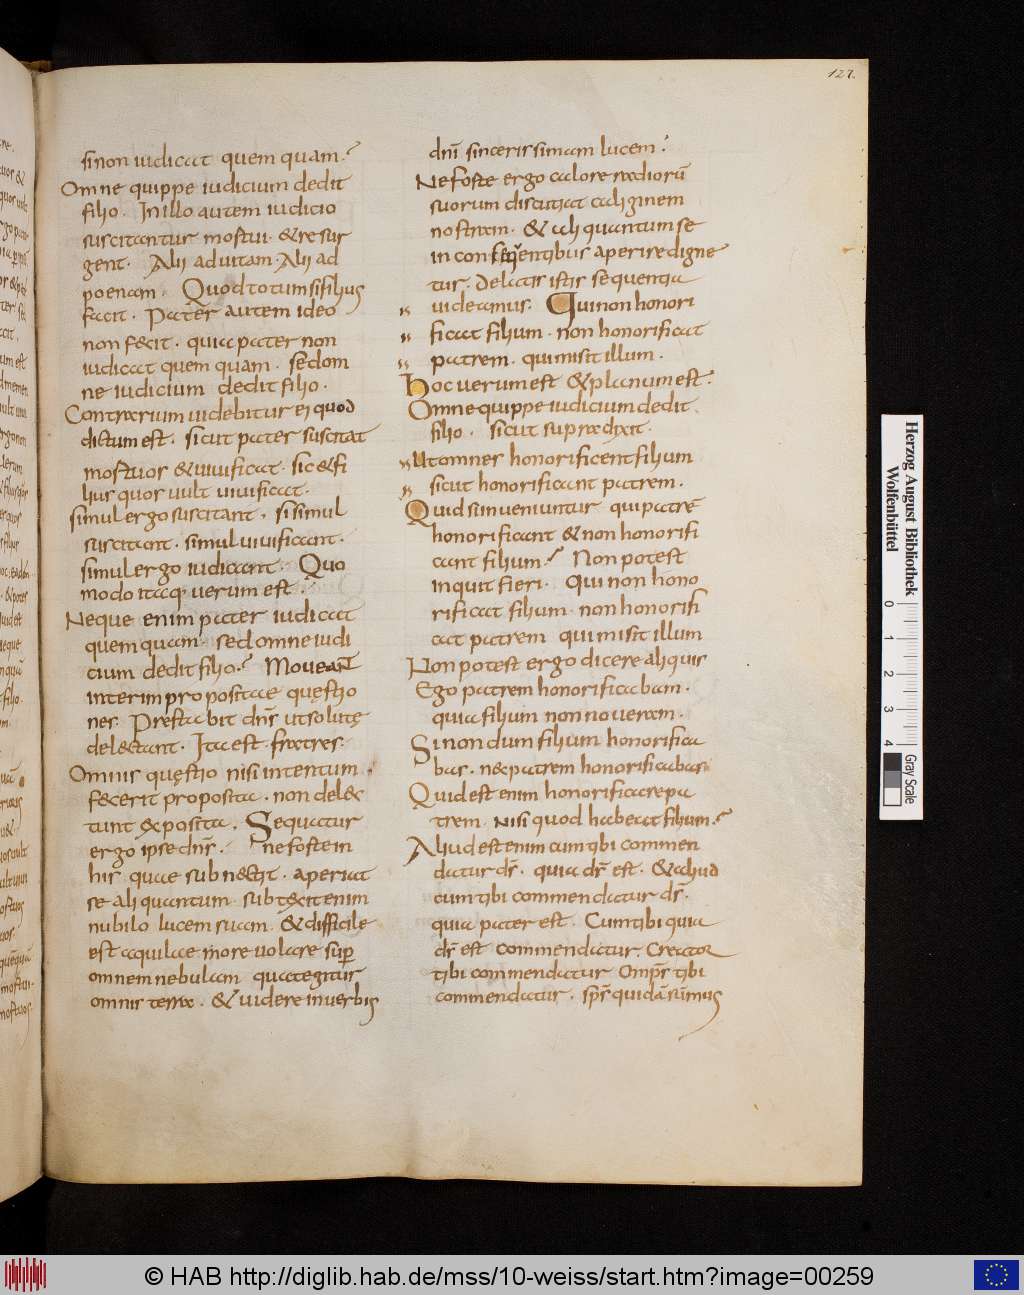 127.
si non iudicat quem quam·?
Omne quippe iudicium dedit
filio· In illo autem iudicio
suscitantur mortui· & resur
gent· Alii ad uitam· Alii ad
poenam· Quod totum si filius
facit· Pater autem ideo
non fecit· quia pater non
iudicat quem quam· sed om
ne iudicium dedit filio·
Contrarium uidebitur ei quod
dictum est· sicut pater suscitat
mortuos & uiuificat· sic & fi
lius quos uult uiuificat·
simul ergo suscitant· si simul
suscitant· simul uiuificant·
simul ergo iudicant· Quo
modo itaq· uerum est·
Neque enim pater iudicat
quem quam· sed omne iudi
cium dedit filio·? Moueant
interim propositae quęstio
nes· Prestabit dn̄s ut solutę
delectant· Ita est fratres·
Omnis quęstio nisi intentum
fecerit proposita· non delec
tant exposita· Sequatur
ergo ipse dn̄s· ne forte in
his quae sub nectit· aperiat
se ali quantum· subtexit enim
nubilo lucem suam· & difficile
est aquilae more uolare sup̄
omnem nebulam qua tegitur
omnis terrae· & uidere in uerbis
dn̄i sincerissimam lucem·?
Ne forte ergo calore radiorū
suorum discutiat caliginem
nostram· & ali quantum se
in consequentibus aperire digne
tur· Delatis istis sequentia
uideamus· Qui non honori
ficat filium· non honorificat
patrem· qui misit illum·
Hoc uerum est & planum est·
Omne quippe iudicium dedit
filio· sicut supra dixit·
Ut omnes honorificent filium
sicut honorificant patrem·
Quid si inueniuntur qui patrē
honorificant & non honorifi
cant filium·? Non potest
inquit fieri· Qui non hono
rificat filium· non honorifi
cat patrem qui misit illum
Non potest ergo dicere aliquis
Ego patrem honorificabam·
quia filium non noueram·
Si nondum filium honorifica
bas· nec patrem honorificabas
Quid est enim honorificare pa
trem· nisi quod habeat filium·?
Aliud est enim cum tibi commen
datur dr̄· quia dr̄ est· & aliud
cum tibi commendatur dr̄·
quia pater est· Cum tibi quia
dr̄ est commendatur· Creator
tibi commendatur Omp̄s tibi
commendatur· sp̄s quidā sum̄mus
Herzog August Bibliothek
Wolfenbüttel
0 1 2 3 4
Gray Scale
© HAB http://diglib.hab.de/mss/10-weiss/start.htm?image=00259